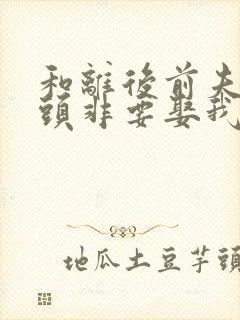 和離後前夫
頭非要娶我
地瓜土豆芋頭